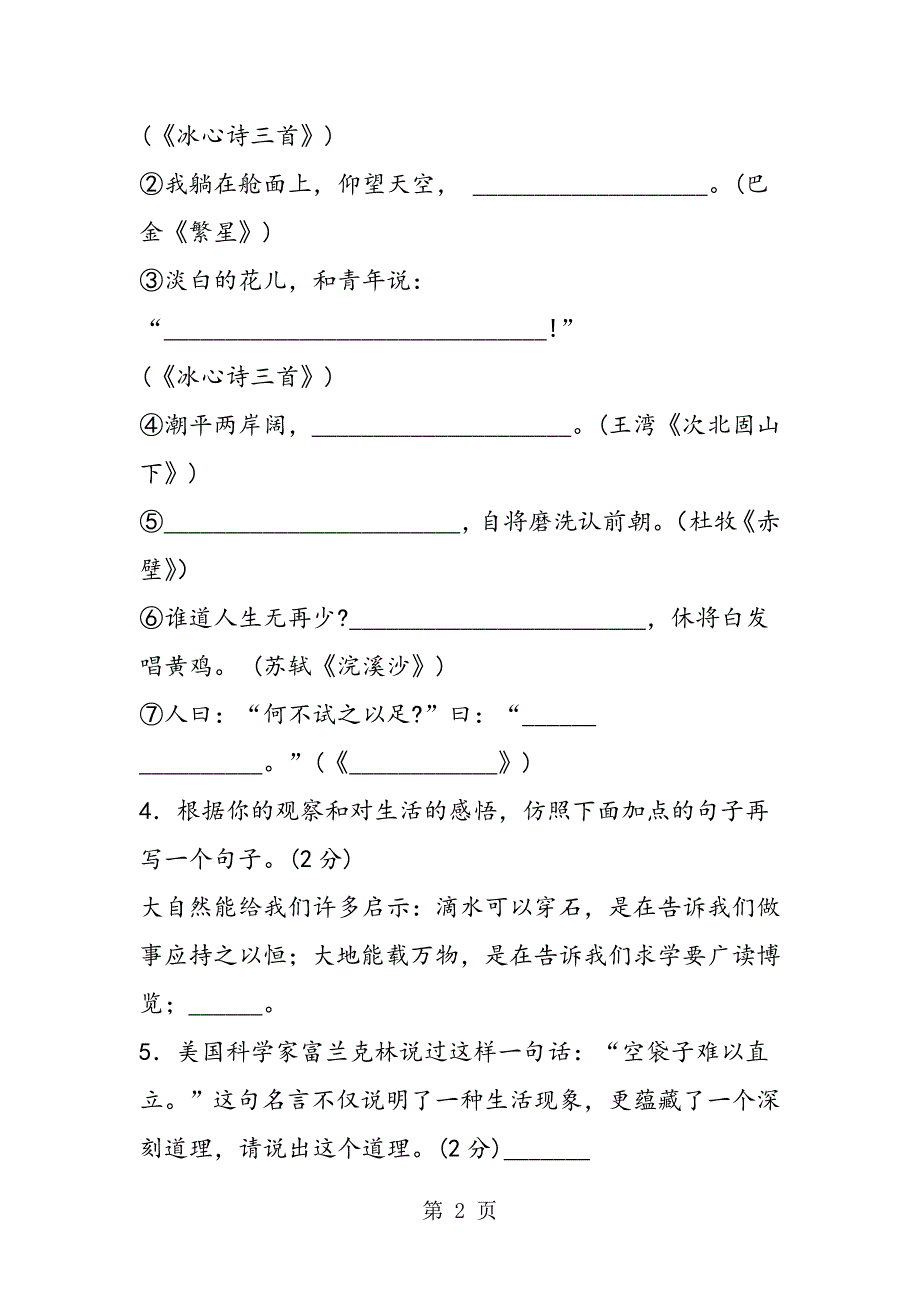 (《冰心诗三首》)
②我躺在舱面上，仰望天空， ___________________。(巴
金《繁星》)
③淡白的花儿，和青年说：
“_______________________________!”
(《冰心诗三首》)
④潮平两岸阔，_____________________。(王湾《次北固山
下》)
⑤________________________，自将磨洗认前朝。(杜牧《赤
壁》)
⑥谁道人生无再少?________________________，休将白发
唱黄鸡。 (苏轼《浣溪沙》)
⑦人曰：“何不试之以足?”曰：“______
__________。”(《____________》)
4．根据你的观察和对生活的感悟，仿照下面加点的句子再
写一个句子。(2分)
大自然能给我们许多启示：滴水可以穿石，是在告诉我们做
事应持之以恒；大地能载万物，是在告诉我们求学要广读博
览；______。
5．美国科学家富兰克林说过这样一句话：“空袋子难以直
立。”这句名言不仅说明了一种生活现象，更蕴藏了一个深
刻道理，请说出这个道理。(2分)_______
第 2 页